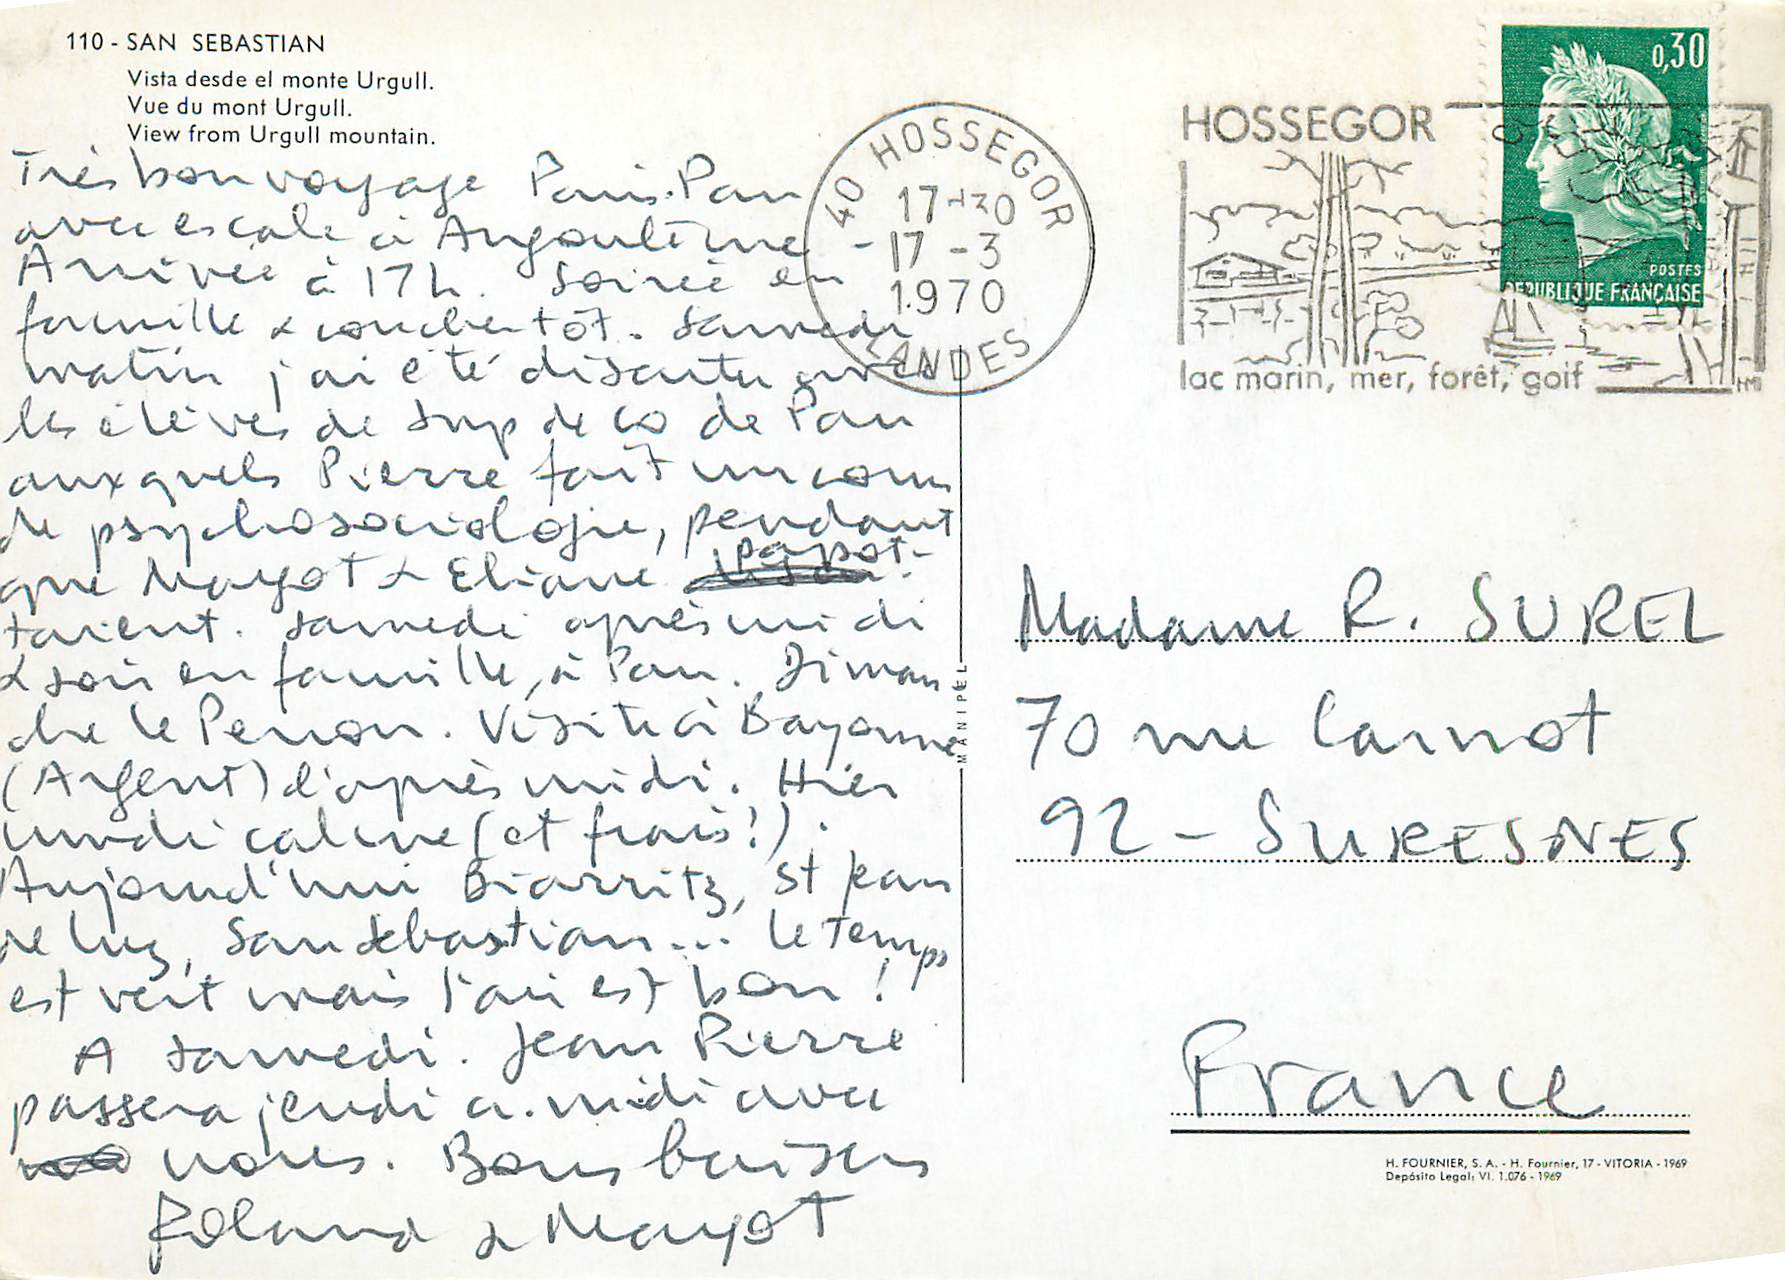 110 - SAN SEBASTIAN
Vista desde el monte Urgull.
Vue du mont Urgull.
View from Urgull mountain.
Très bon voyage Paris-Pau
avec escale à Angoulême -
Arrivée à 17h. Soirée en
famille & coucher tôt. Samedi
matin j'ai été discuter avec
les élèves de Sup de Co de Pau
auxquels Pierre fait un cours
de psychosociologie, pendant
que Mayot & Eliane papot-
taient. Samedi après midi
& soir en famille, à Pau. Diman
che le Penon. Visite à Bayonne
(Argent) l'après midi. Hier
lundi calme (et frais!).
Aujourd'hui Biarritz, St Jean
de Luz, San Sebastian... Le temps
est vert mais l'air est bon!
A samedi. Jean Pierre
passera jeudi a. midi avec
nous. Bons baisers
Roland & Mayot
40 HOSSEGOR
17 H30
17 - 3
1970
LANDES
HOSSEGOR
lac marin, mer, forêt, golf
HM
0,30
POSTES
REPUBLIQUE FRANÇAISE
MANIPEL
Madame R. SUREL
70 rue Carnot
92 - SURESNES
France
H. FOURNIER, S. A. - H. Fournier, 17 - VITORIA - 1969
Depósito Legal: VI. 1.076 - 1969